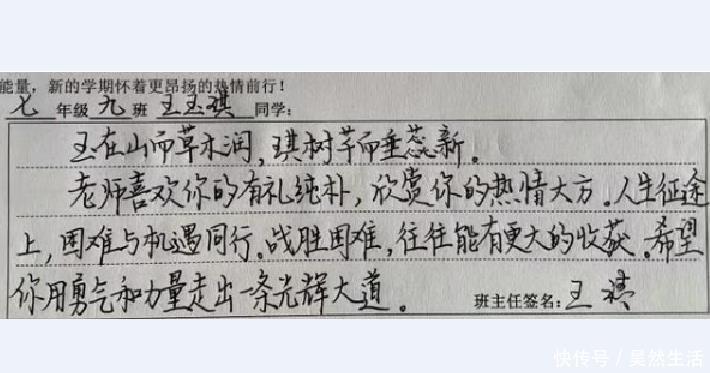 能量，新的学期怀着更昂扬的热情前行！
七年级九班 王玉琪 同学：
玉在山而草木润，琪树芊而垂蕊新。
老师喜欢你的有礼纯朴，欣赏你的热情大方。人生征途
上，困难与机遇同行。战胜困难，往往能有更大的收获。希望
你用勇气和力量走出一条光辉大道。 班主任签名：王
快传号／昊然生活